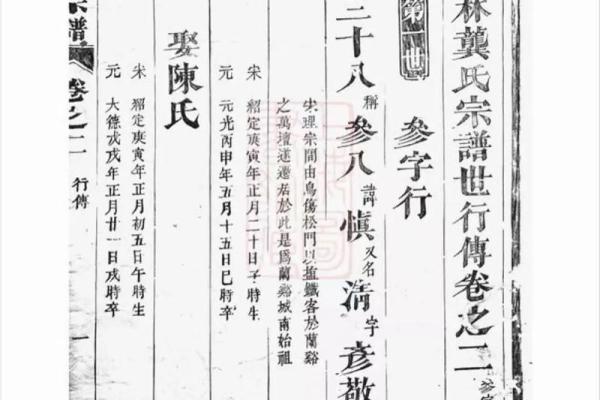 林龔氏宗譜世行傳卷之二
第一世
參字行
二十八 稱 參八 諱 慎 又名 清 字 彥敬
宋理宗間由烏傷松門以
鐵客於蘭谿
之萬壇遂遷居於此是爲蘭谿城南始祖
宋 紹定庚寅年正月二十日子時生
元 元光丙申年五月十五日巳時卒
娶陳氏
宋 紹定庚寅年正月初五日午時生
元 大德戊戌年正月廿一日戌時卒
宗譜 卷之二 行傳 一